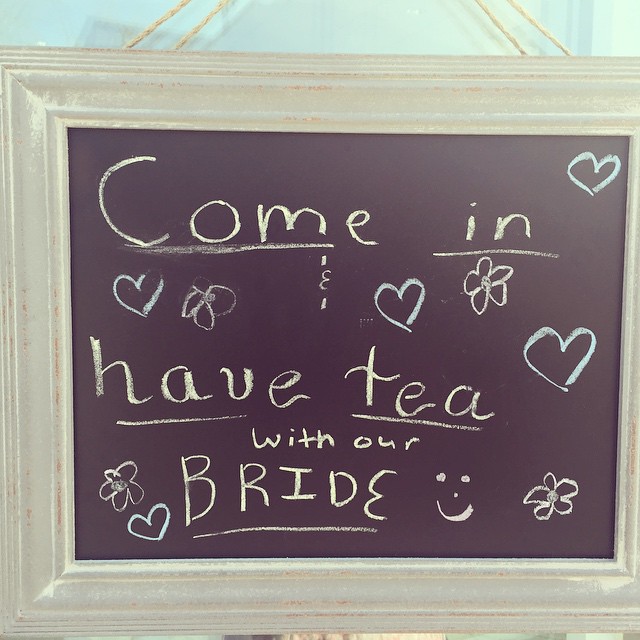 Come in
&
have tea
with our
BRIDE